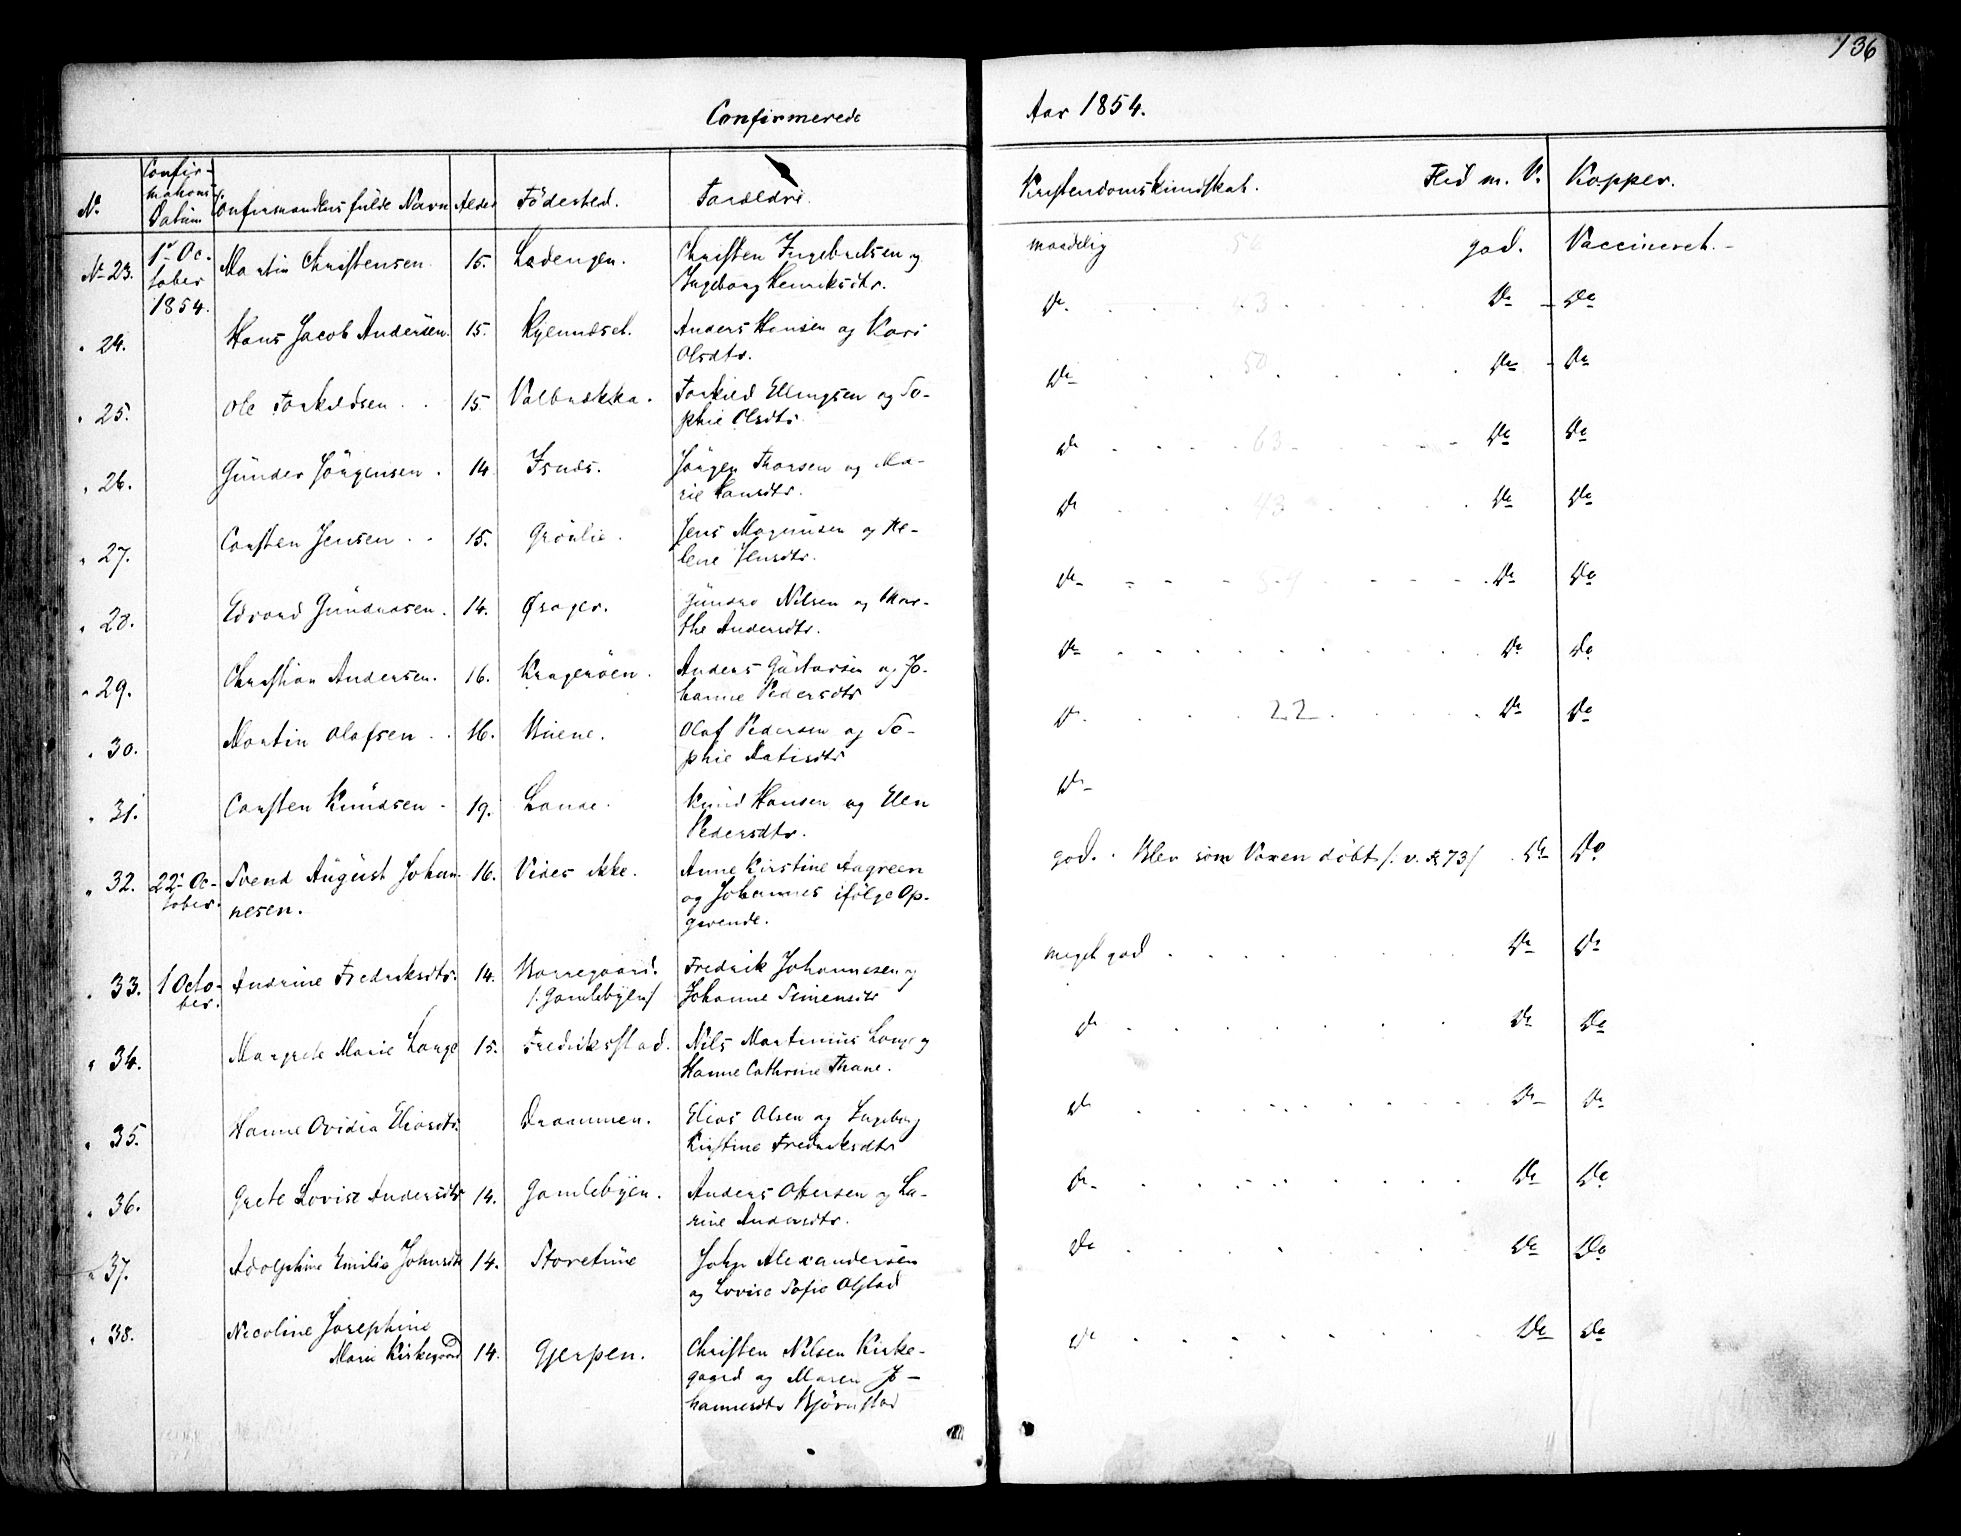 136
Confirmerede Aar 1854.
No Confir-mations Datum Confirmandens fulde Navn Alder Födested. Foreldre. Kristendomskundskab. Flid m. V. Kopper.
No 23. 1ste October 1854. Martin Christensen. 15. Ladengen. Christen Ingebretsen og maadelig 56 god. Vaccineret.
Ingeborg Henriksdtr.
" 24. Hans Jacob Andersen. 15. Kjennset. Anders Hansen og Kari Do. 3 Do Do
Olsdtr.
" 25. Ole Torkildsen. 15. Valbrækka. Torkild Ellingsen og So- Do 50 Do Do
phie Olsdtr.
" 26. Gunder Jörgensen. 14. Isnæs. Jörgen Thorsen og Ma- Do 63 Do Do
rie Hansdtr.
" 27. Carsten Jensen. 15. Grönlie. Jens Magnusen og He- Do 43 Do Do
lene Jensdtr.
" 28. Edvard Gundrosen. 14. Ørager. Gundro Nilsen og Mar- Do 54 Do Do
the Andersdtr.
" 29. Christian Andersen. 16. Kragerøen. Anders Gustavsen og Jo- Do Do Do
hanne Pedersdtr
" 30. Martin Olafsen. 16. Buene. Olaf Pedersen og So- Do. 22 Do Do
phie Matisdtr
" 31. Carsten Knudsen. 19. Lande. Knud Hansen og Elen Do
Pedersdtr.
" 32. 22de October. Svend August Johan- 16. Vides ikke. Anne Kirstine Aagreen god. Blev som Voxen döbt /: v. No 73/ Do Do
nesen. og Johannes ifölge Op-
givende.
" 33. 1 October. Andrine Fredriksdtr. 14. Borregaard. Fredrik Johannesen og meget god Do Do
/: Gamlebyen/ Johanne Simensdtr
" 34. Margrete Marie Lange 15. Fredriksstad. Nils Martinius Lange og Do Do Do
Hanne Cathrine Thrane.
" 35. Hanne Ovidia Eliasdtr. Drammen. Elias Olsen og Ingeborg Do Do Do
Kirstine Fredriksdtr
" 36. Grete Lovise Andersdtr 14. Gamlebyen. Anders Ottersen og La- Do Do Do
rine Andersdtr.
" 37. Adolphine Emilie Johnsdtr 14. Storetune John Alexandersen Do Do Do
og Lovise Sofie Olstad
" 38. Nicoline Josephine
Marie Kirkegaard 14. Gjerpen. Christen Nilsen Kirke- Do Do Do
gaard og Maren Jo-
hannesdtr Bjørnstad